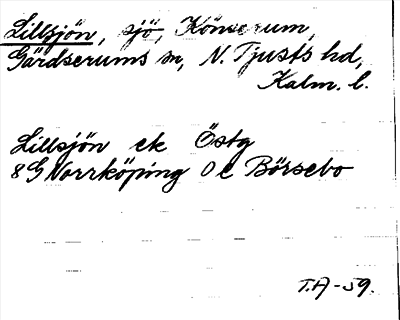 Lillsjön, sjö, Könserum,
Gärdserums sn, N. Tjusts hd,
Kalm. l.
Lillsjön ek Östg
8G Norrköping 0e Börsebo
T.A-59.